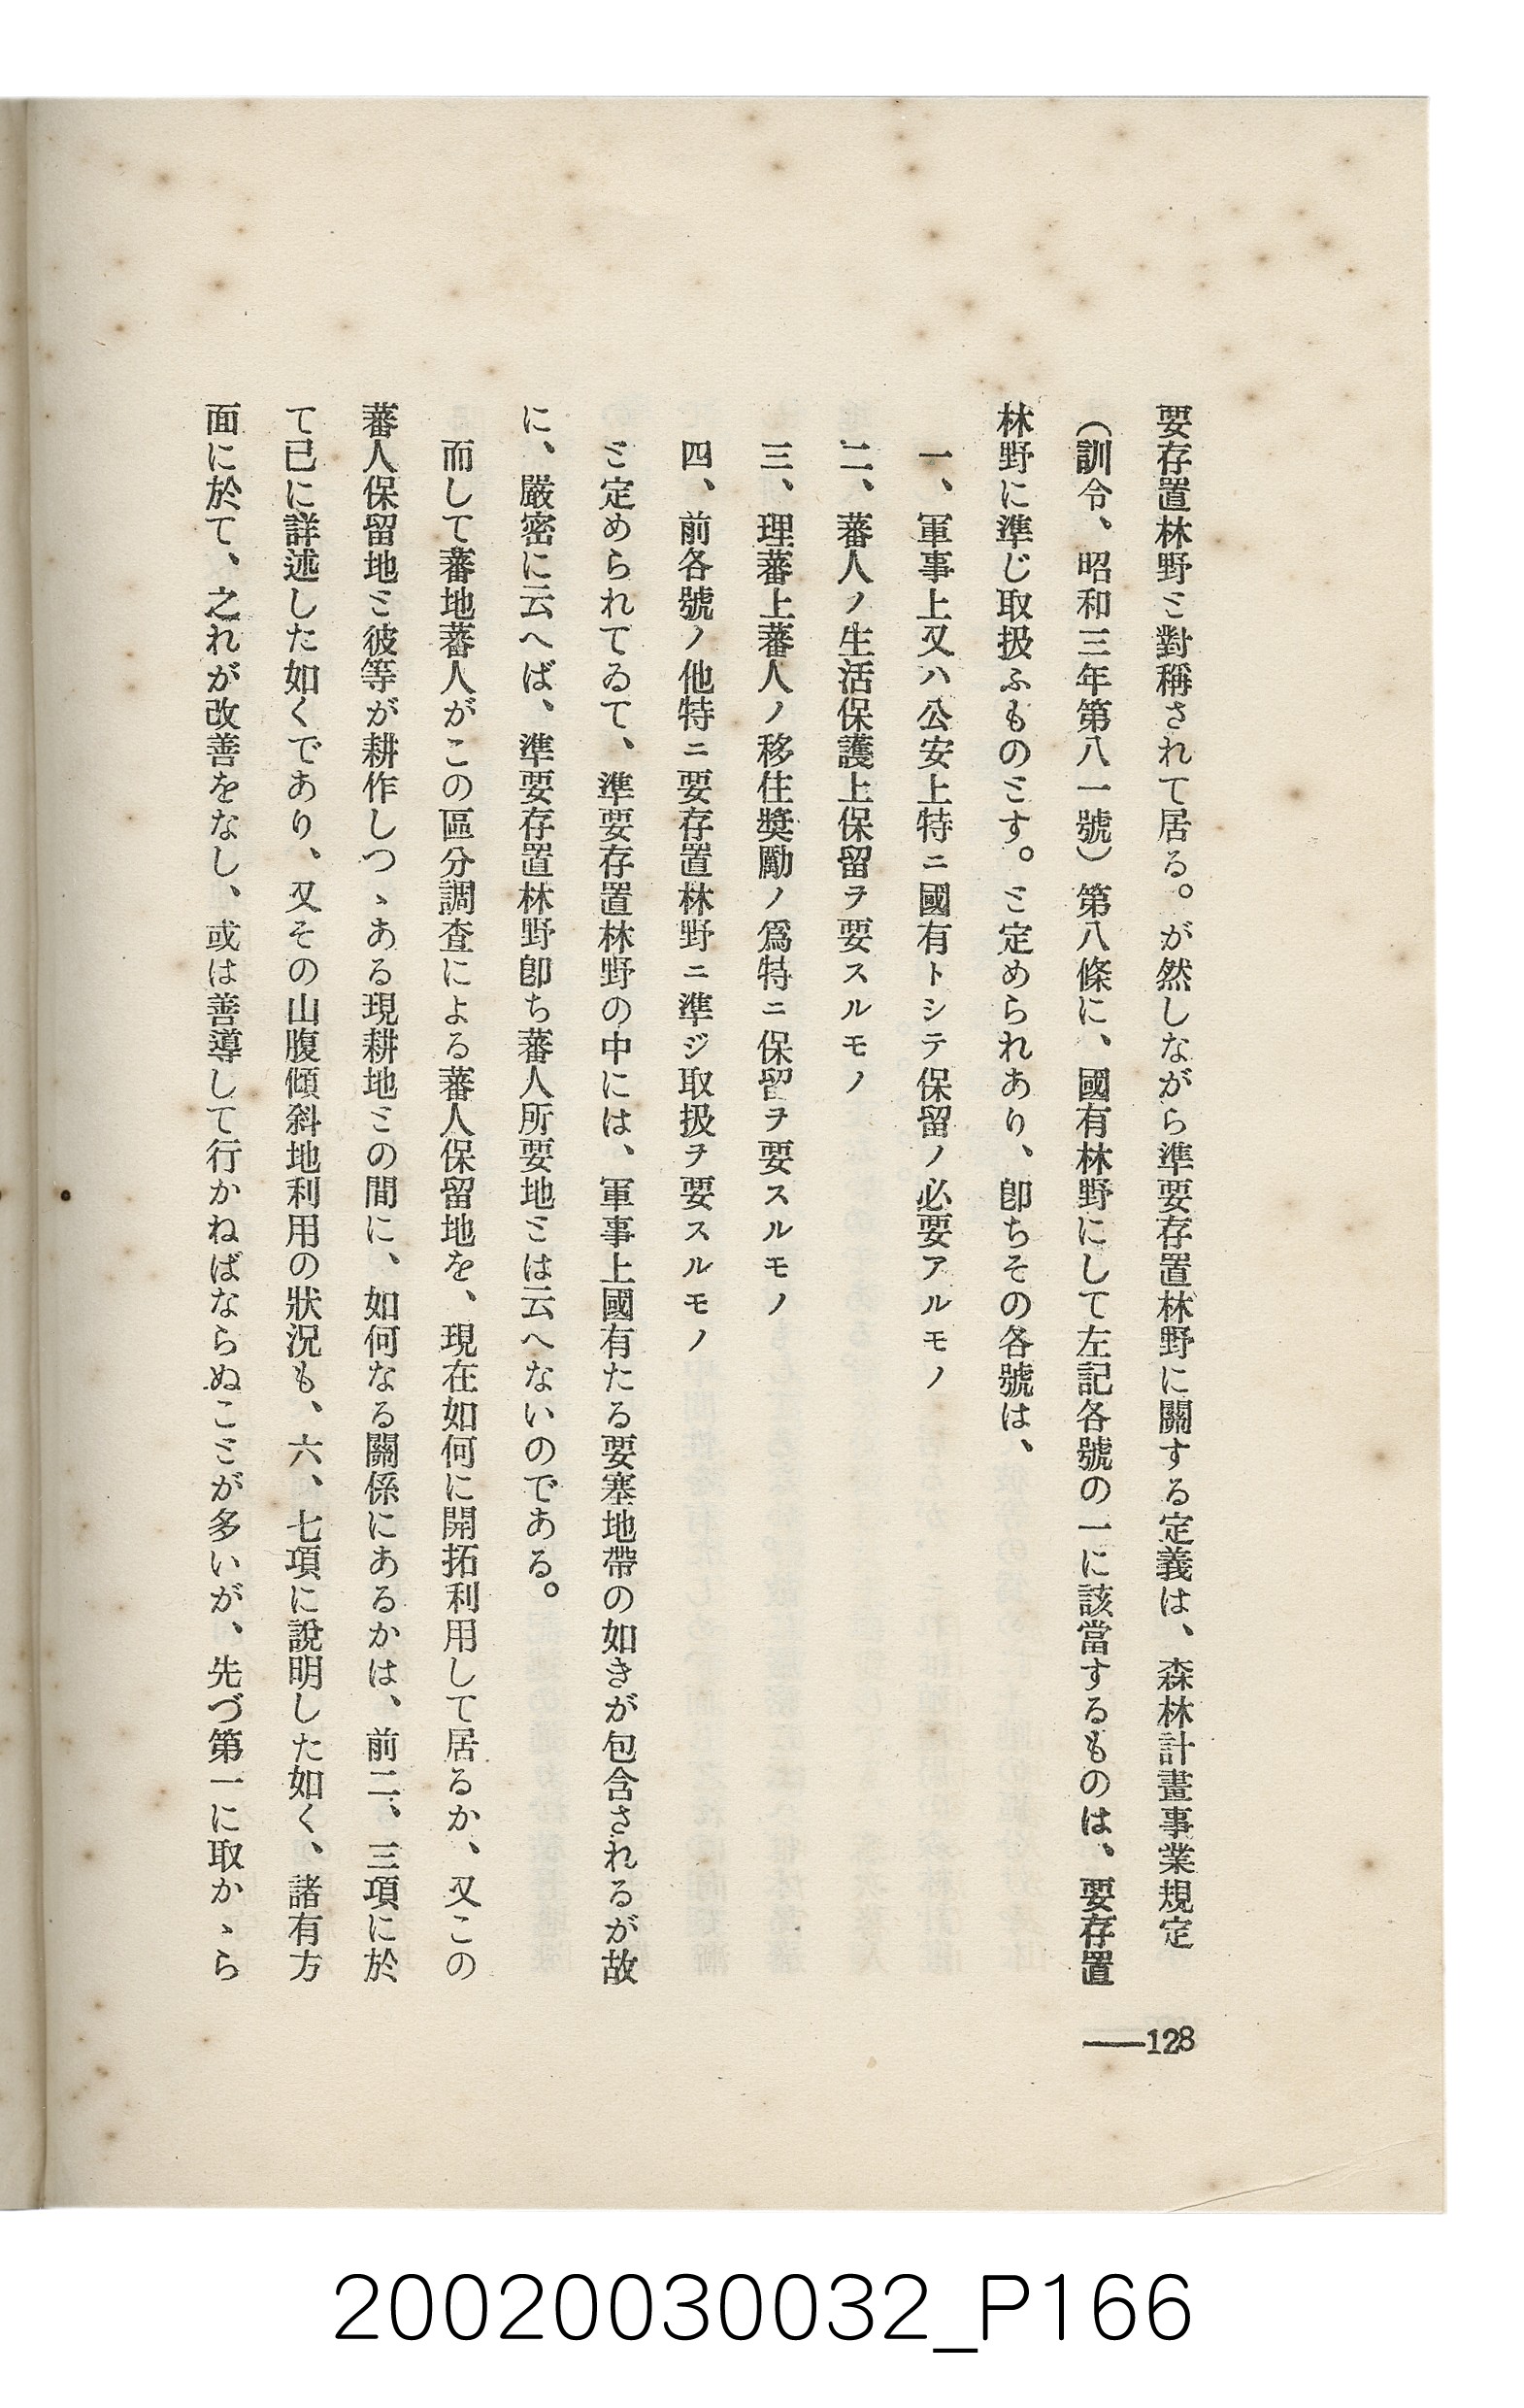 要存置林野ミ對稱されて居る。が然しながら準要存置林野に關する定義は、森林計畫事業規定
（訓令、昭和三年第八一號）第八條に、國有林野にして左記各號の一に該當するものは、要存置
林野に準じ取扱ふものミす。ミ定められあり、卽ちその各號は、
一、軍事上又ハ公安上特ニ國有トシテ保留ノ必要アルモノ
二、蕃人ノ生活保護上保留ヲ要スルモノ
三、理蕃上蕃人ノ移住奬勵ノ爲特ニ保留ヲ要スルモノ
四、前各號ノ他特ニ要存置林野ニ準ジ取扱ヲ要スルモノ
ミ定められてゐて、準要存置林野の中には、軍事上國有たる要塞地帶の如きが包含されるが故
に、嚴密に云へば、準要存置林野卽ち蕃人所要地ミは云へないのである。
而して蕃地蕃人がこの區分調査による蕃人保留地を、現在如何に開拓利用して居るか、又この
蕃人保留地ミ彼等が耕作しつゝある現耕地ミの間に、如何なる關係にあるかは、前二、三項に於
て已に詳述した如くであり、又その山腹傾斜地利用の狀況も、六、七項に說明した如く、諸有方
面に於て、之れが改善をなし、或は善導して行かねばならぬこミが多いが、先づ第一に取かゝら
—128
20020030032_P166